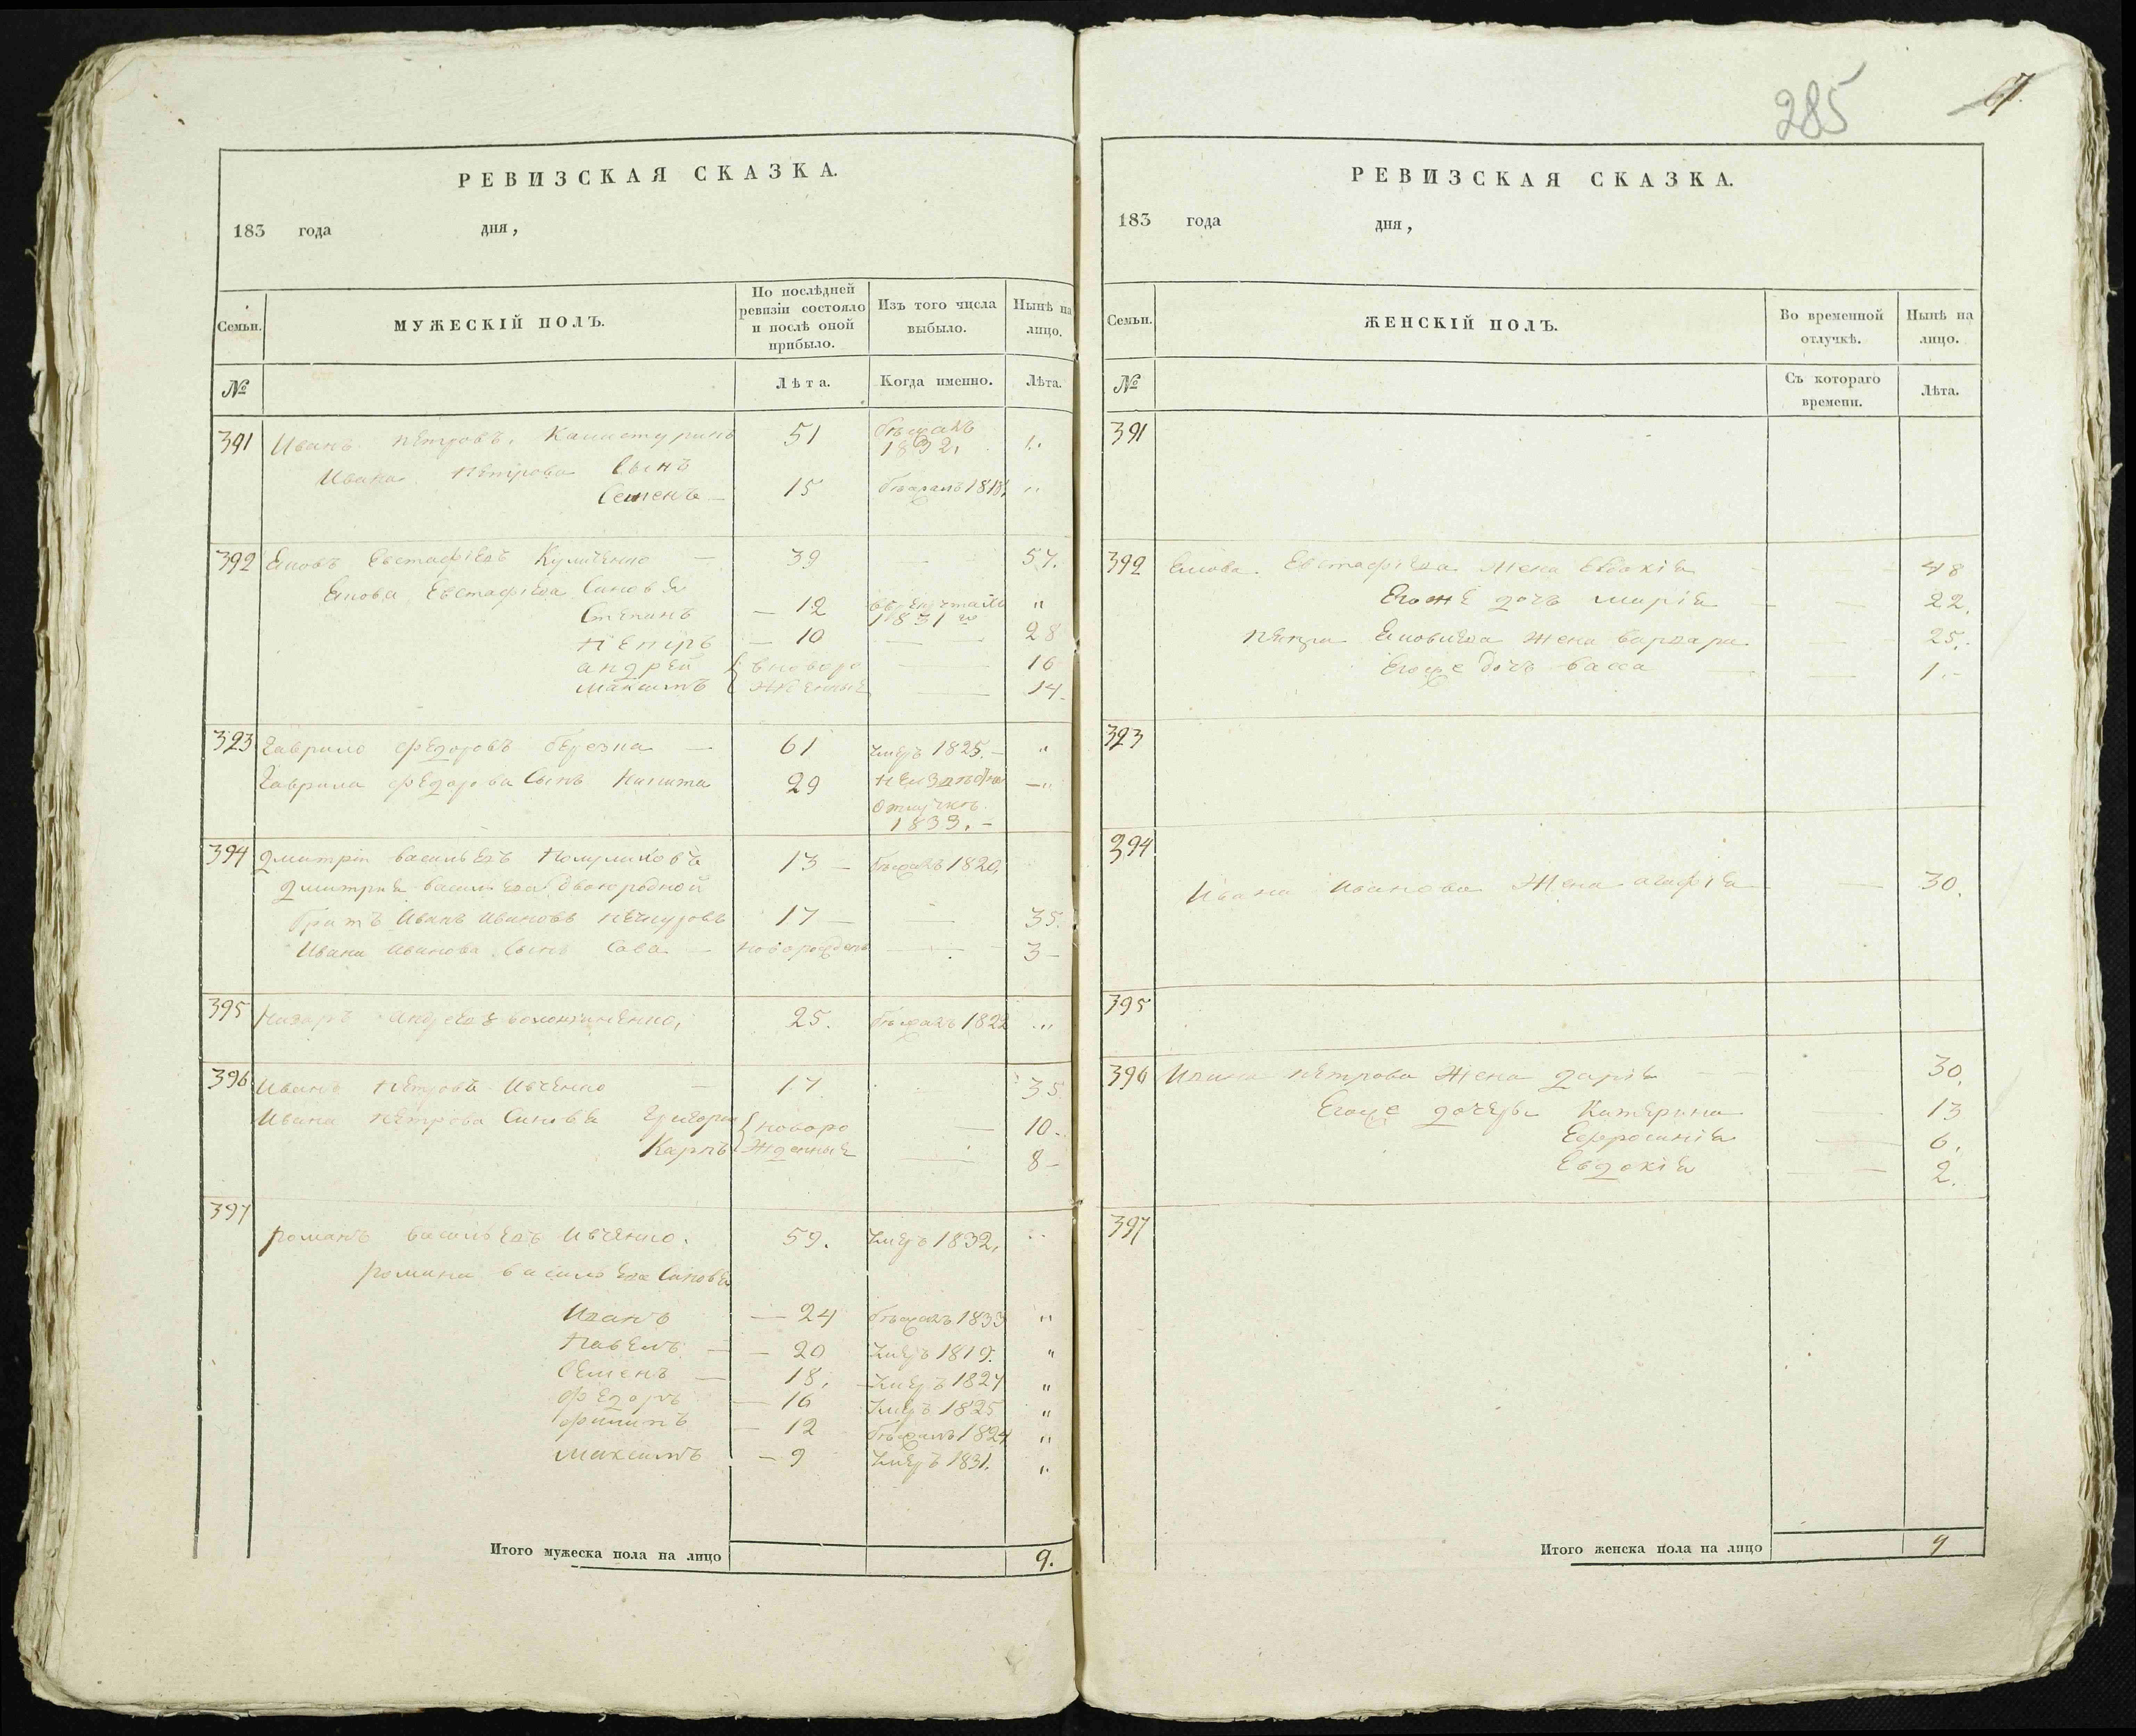 285
67.
РЕВИЗСКАЯ СКАЗКА.
183 года дня,
Семьи. МУЖЕСКІЙ ПОЛЪ. По послѣдней ревизіи состояло и послѣ оной прибыло. Изъ того числа выбыло. Нынѣ на лицо.
№ Лѣта. Когда именно. Лѣта.
391 Иванъ Петровъ 51 бѣжалъ 1832. "
Ивана Петрова Сынъ
Семенъ — 15 бѣжалъ 1818, "
392 Евстафіевъ 39 — 57.
Евстафіева Синовя
Степанъ — 12 1831 го "
Петръ — 10 — 28
андрей новоро — 16
Максимъ жденные — 14.
393 Гаврило Федоровъ березка — 61 Умеръ 1825. — "
Гаврила Федорова Сынъ Никита 29 — "
Отлучкѣ
1833. —
394 Дмитрій Васильевъ 13 — бѣжалъ 1820,
Дмитрия Васильева Двоюродной
братъ Иванъ Ивановъ 17 — 35.
Ивана Иванова Сынъ Сава — новорожденъ — 3 —
395 Назаръ Андреевъ 25. бѣжалъ 1822 "
396 Иванъ Петровъ Ивченко — 17 35
Ивана Петрова Синовя Григорій новоро — 10 —
Карпъ жденные — 8 —
397
Романъ Васильевъ Ивченко. 59. Умеръ 1832,
Романа Васильева Синовя
Иванъ — 24 бѣжалъ 1833 "
Павелъ — 20 Умеръ 1819. "
Семенъ — 18, Умеръ 1827 "
Федоръ — 16 Умеръ 1825 "
Филипъ — 12 бѣжалъ 1824 "
Максимъ — 9 Умеръ 1831. "
Итого мужеска пола на лицо 9.
РЕВИЗСКАЯ СКАЗКА.
183 года дня,
Семьи. ЖЕНСКІЙ ПОЛЪ. Во временной отлучкѣ. Нынѣ на лицо.
№ Съ котораго времени. Лѣта.
391
392 Евстафіева Жена Евдокія — 48
Егоже дочь Марія — 22.
Петра Жена Варвара 25.
Егоже дочь Васса — 1. —
393
394
Ивана Иванова Жена агафія — 30.
395
396 Ивана Петрова Жена Дарія — 30.
Егоже дочери Катерина — 13
Ефросинія — 6.
Евдокія — 2.
397
Итого женска пола на лицо 9